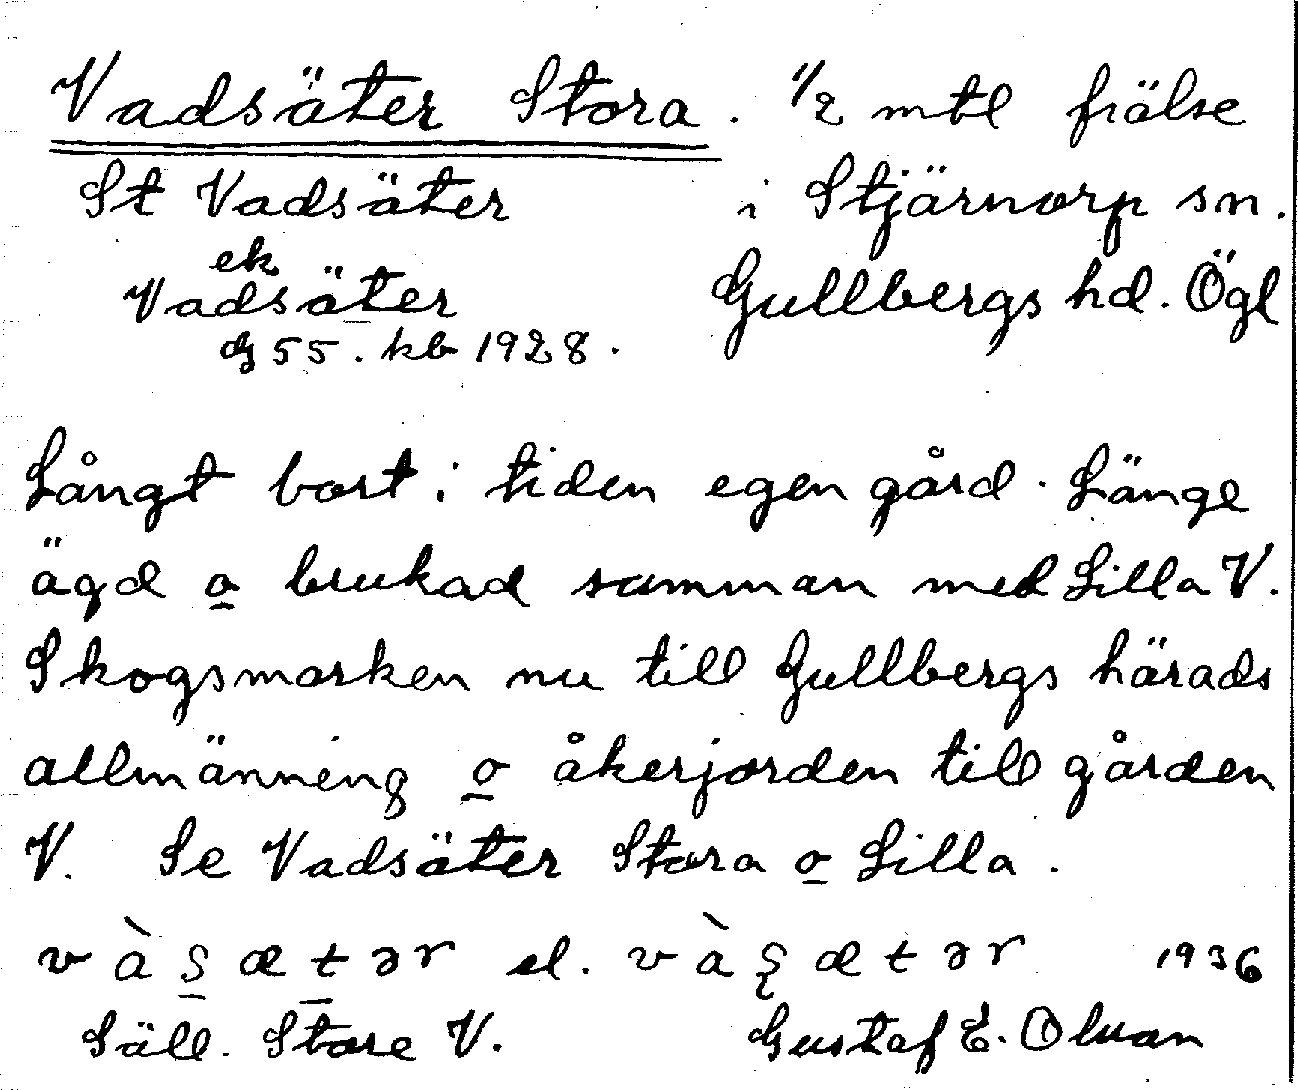 Vadsäter Stora. 1/2 mtl frälse
St Vadsäter i Stjärnorp sn.
ek
Vadsäter Gullbergs hd. Ögl
G 55. kb 1928.
Långt bort i tiden egen gård. Länge
ägd o brukad samman med Lilla V.
Skogsmarken nu till Gullbergs härads
allmänning o åkerjorden till gården
V. Se Vadsäter Stora o Lilla.
1936
Säll. Store V. Gustaf E. Olsson